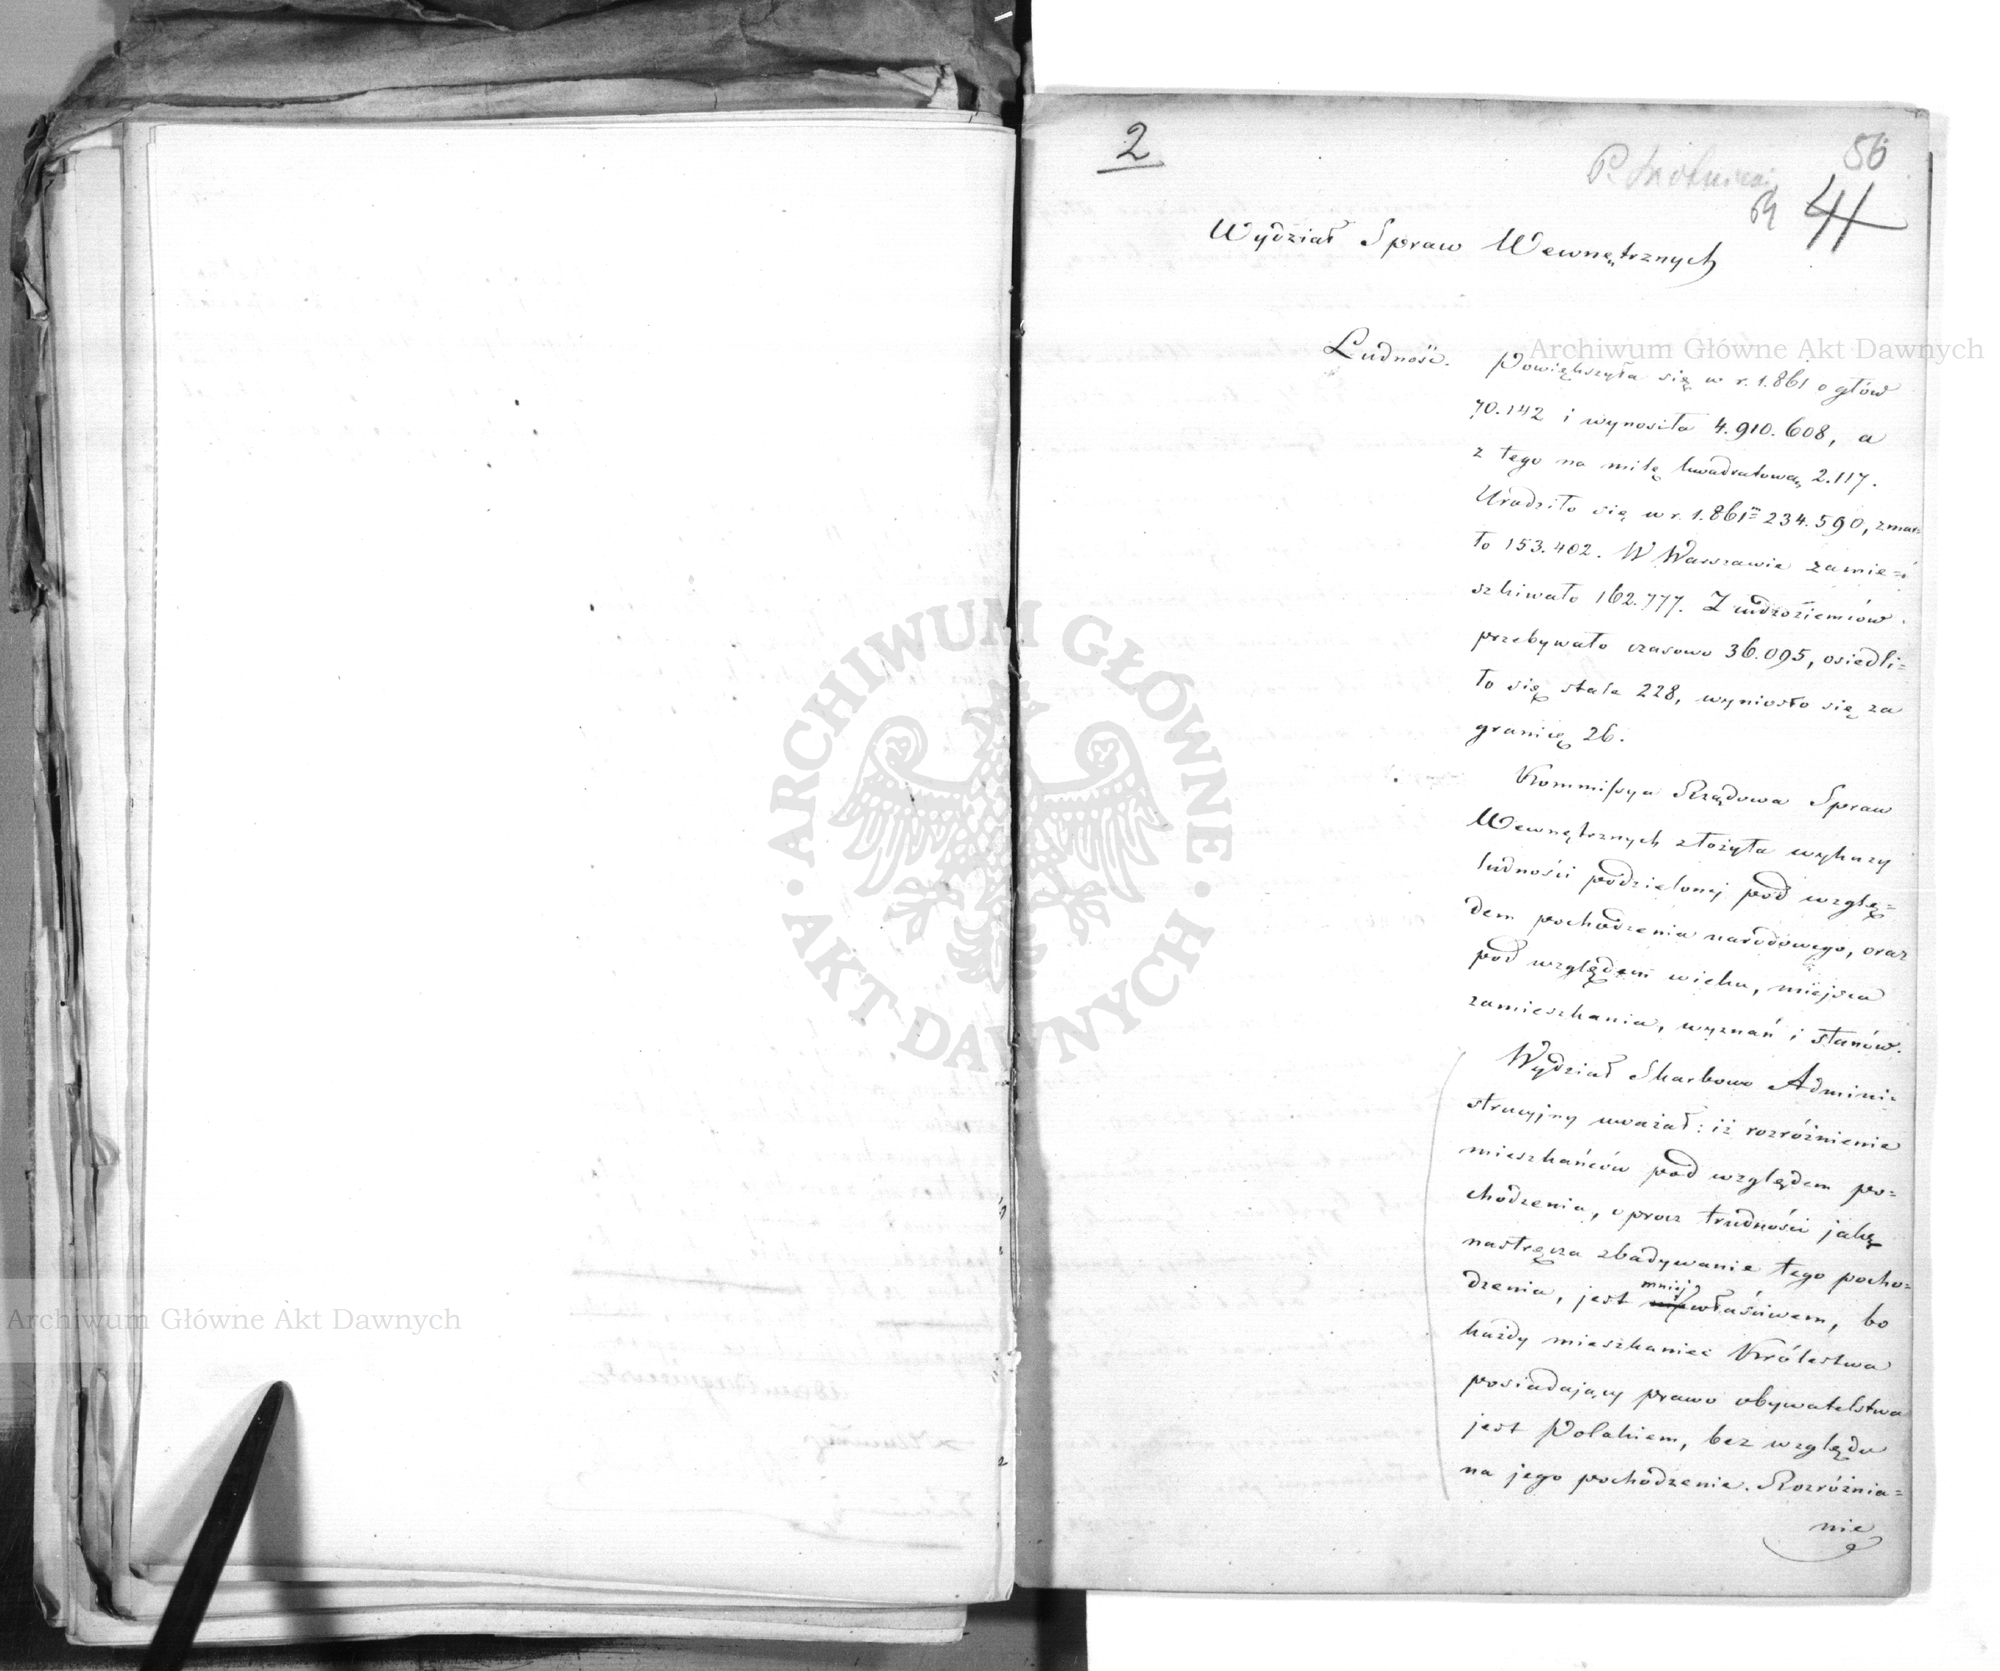 2
56
64
41
Wydział Spraw Wewnętrznych
Ludność. Powiększyła się w r. 1.861 o głów
70.142 i wynosiła 4.910.608, a
z tego na milę kwadratową 2.117.
Urodziło się w r. 1.861m 234.590, zmar=
ło 153.402. W Warszawie zamie=
szkiwało 162.777. Z cudzoziemców
przebywało czasowo 36.095, osiedli=
ło się stale 228, wyniosło się za
granicę 26.
Kommissya Rządowa Spraw
Wewnętrznych złożyła wykazy
ludności podzielonej pod wzglę=
dem pochodzenia narodowego, oraz
pod względem wieku, miejsca
zamieszkania, wyznań i stanów.
Wydział Skarbowo Admini=
stracyjny uważał: iż rozróżnienie
mieszkańców pod względem po=
chodzenia, oprócz trudności jaką
nastręcza zbadywanie tego pocho=
dzenia, jest mniej właściwem, bo
każdy mieszkaniec Królestwa
posiadający prawo obywatelstwa
jest Polakiem, bez względu
na jego pochodzenie. Rozróżnia=
nie
Archiwum Główne Akt Dawnych
ARCHIWUM GŁÓWNE
AKT DAWNYCH
Archiwum Główne Akt Dawnych